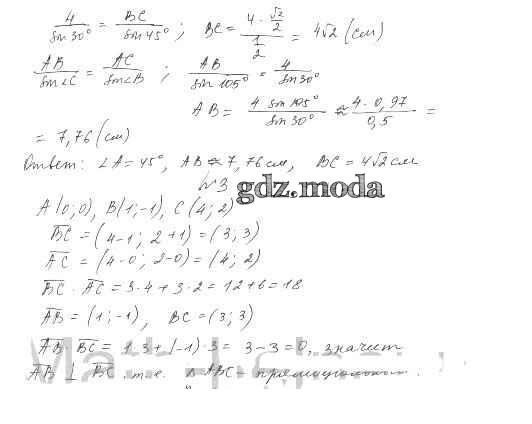 4 / sin 30° = BC / sin 45° ; BC = (4 · √2/2) / (1/2) = 4√2 (см)
AB / sin∠C = AC / sin∠B ; AB / sin 105° = 4 / sin 30°
AB = 4 sin 105° / sin 30° ≈ 4 · 0,97 / 0,5 =
= 7,76 (см)
Ответ: ∠A = 45°, AB ≈ 7,76 см, BC = 4√2 см
№3
gdz.moda
A(0;0), B(1;-1), C(4;2)
BC = (4-1; 2+1) = (3; 3)
AC = (4-0; 2-0) = (4; 2)
BC · AC = 3·4 + 3·2 = 12+6 = 18
AB = (1; -1), BC = (3; 3)
AB · BC = 1·3 + (-1)·3 = 3-3 = 0, значит
AB ⊥ BC, т.е. Δ ABC - прямоугольный.